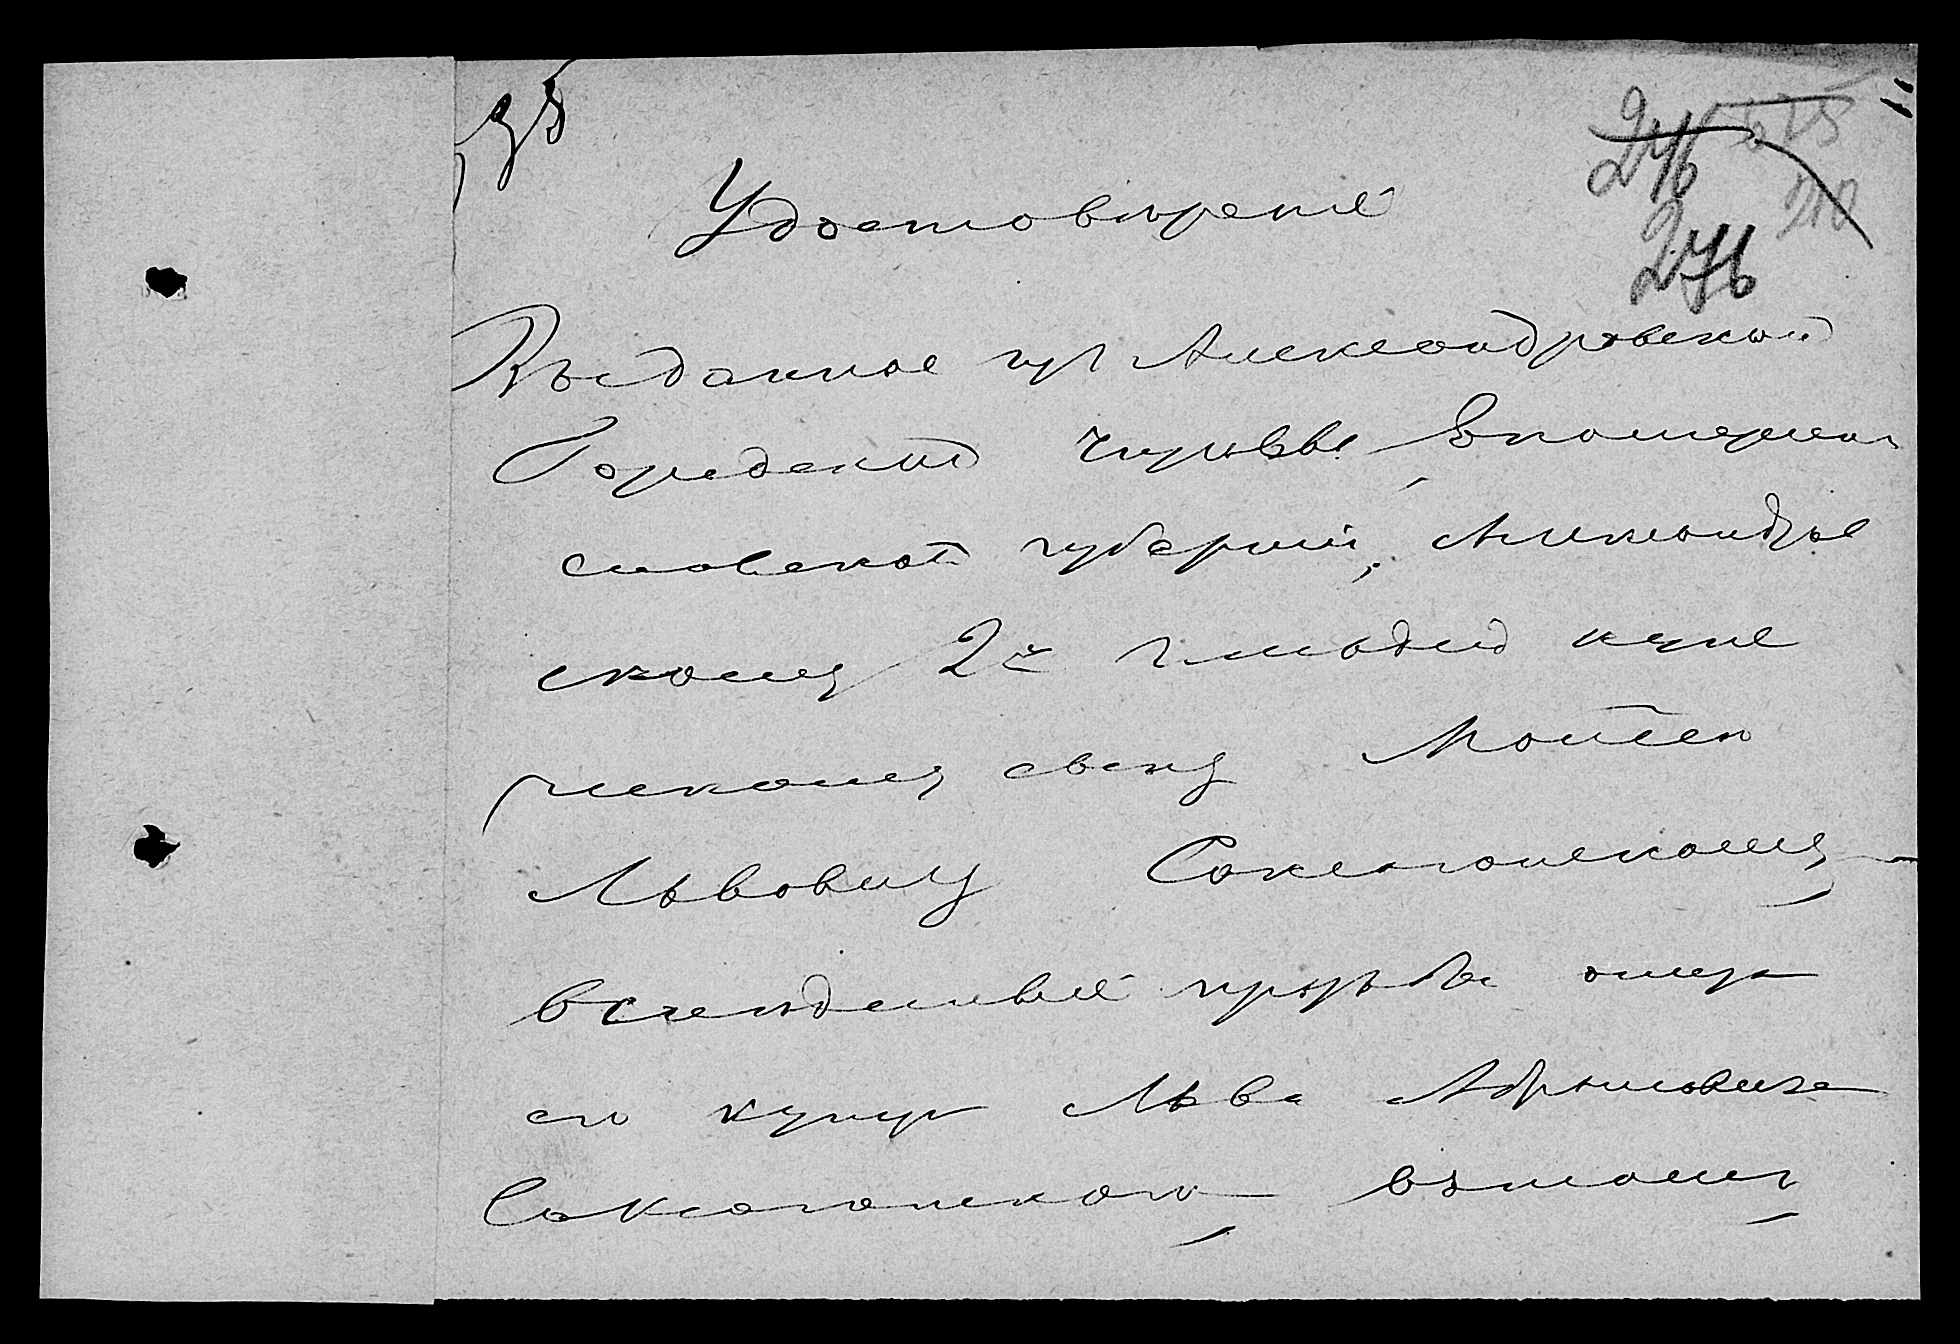 246 675
210
276
Удостовѣренiе
Выданное изъ Александровской
Городской Управы, Екатерино
славской губернiи, Александров
скому 2й гильдiи купе
ческому сыну Моисею
Львовичу Саксаганскому,
вслѣдствiе просьбы отца
его купца Льва Абрамовича
Саксаганскаго, въ томъ,